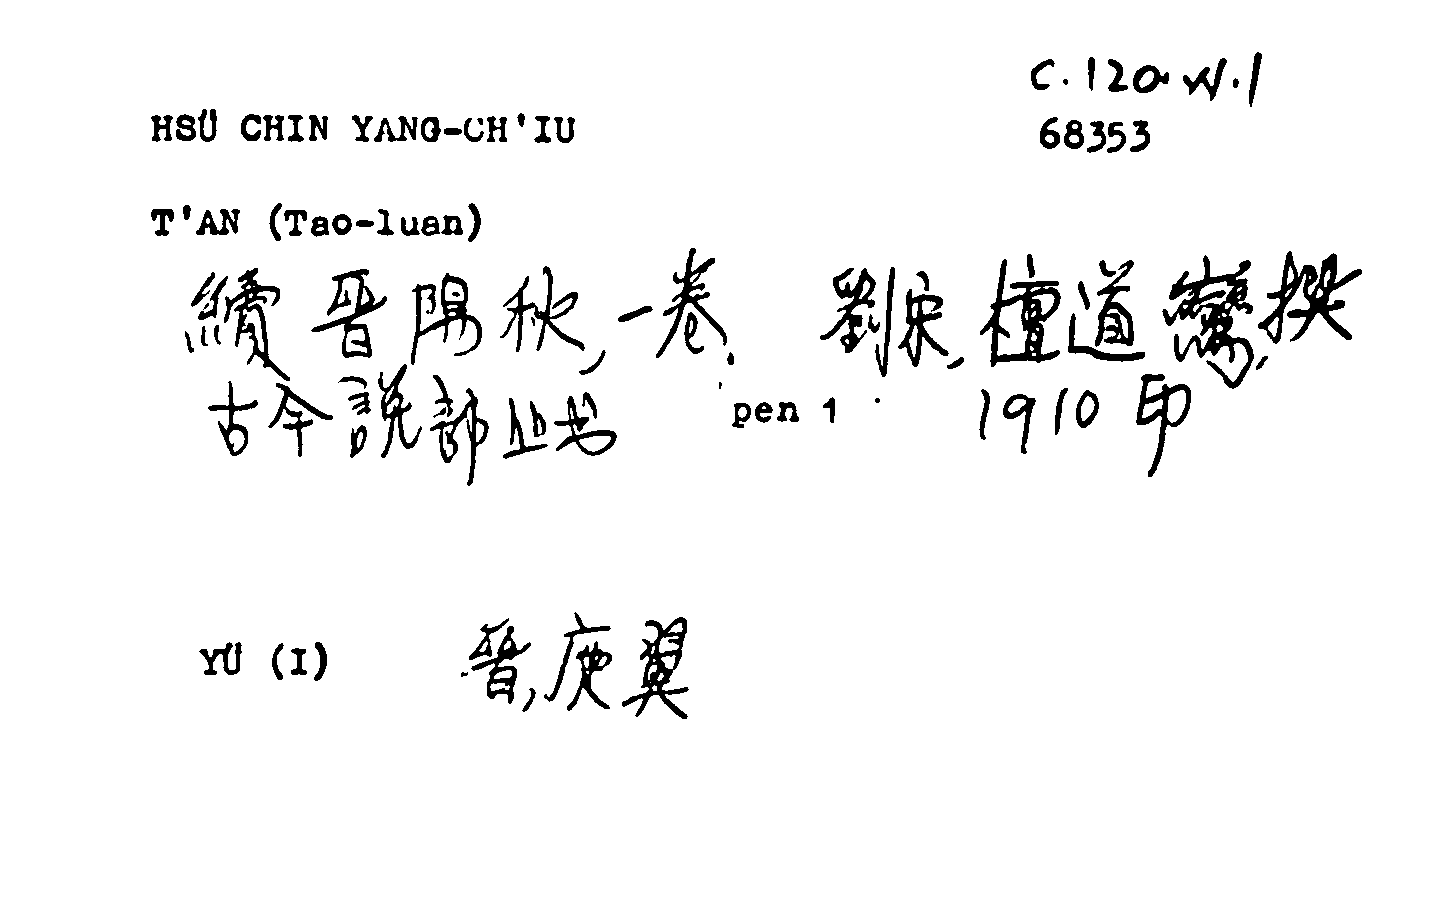 C.120.W.1
HSÜ CHIN YANG-CH'IU
68353
T'AN (Tao-luan)
續晉陽秋,一卷. 劉宋,檀道鸞,撰
古今說部丛书 pen 1 1910印
YÜ (I) 晉,庾翼